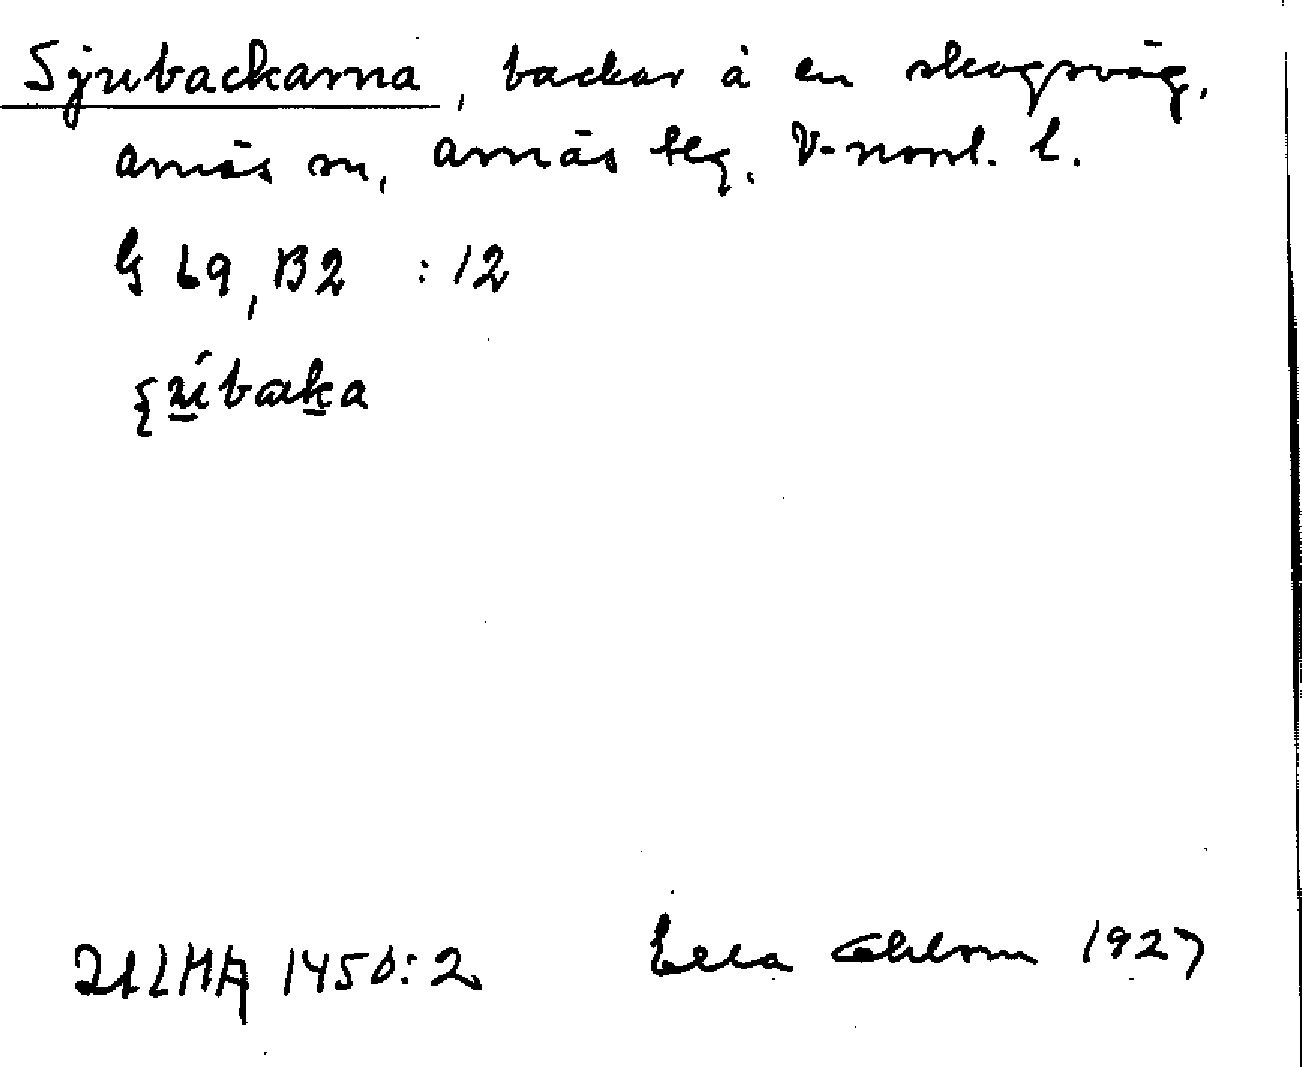 Sjubackarna, backar å en skogsväg,
Arnäs sn, Arnäs tlg. V-norrl. l.
G 69, B2 :12
1450:2 Ella Ohlson 1927